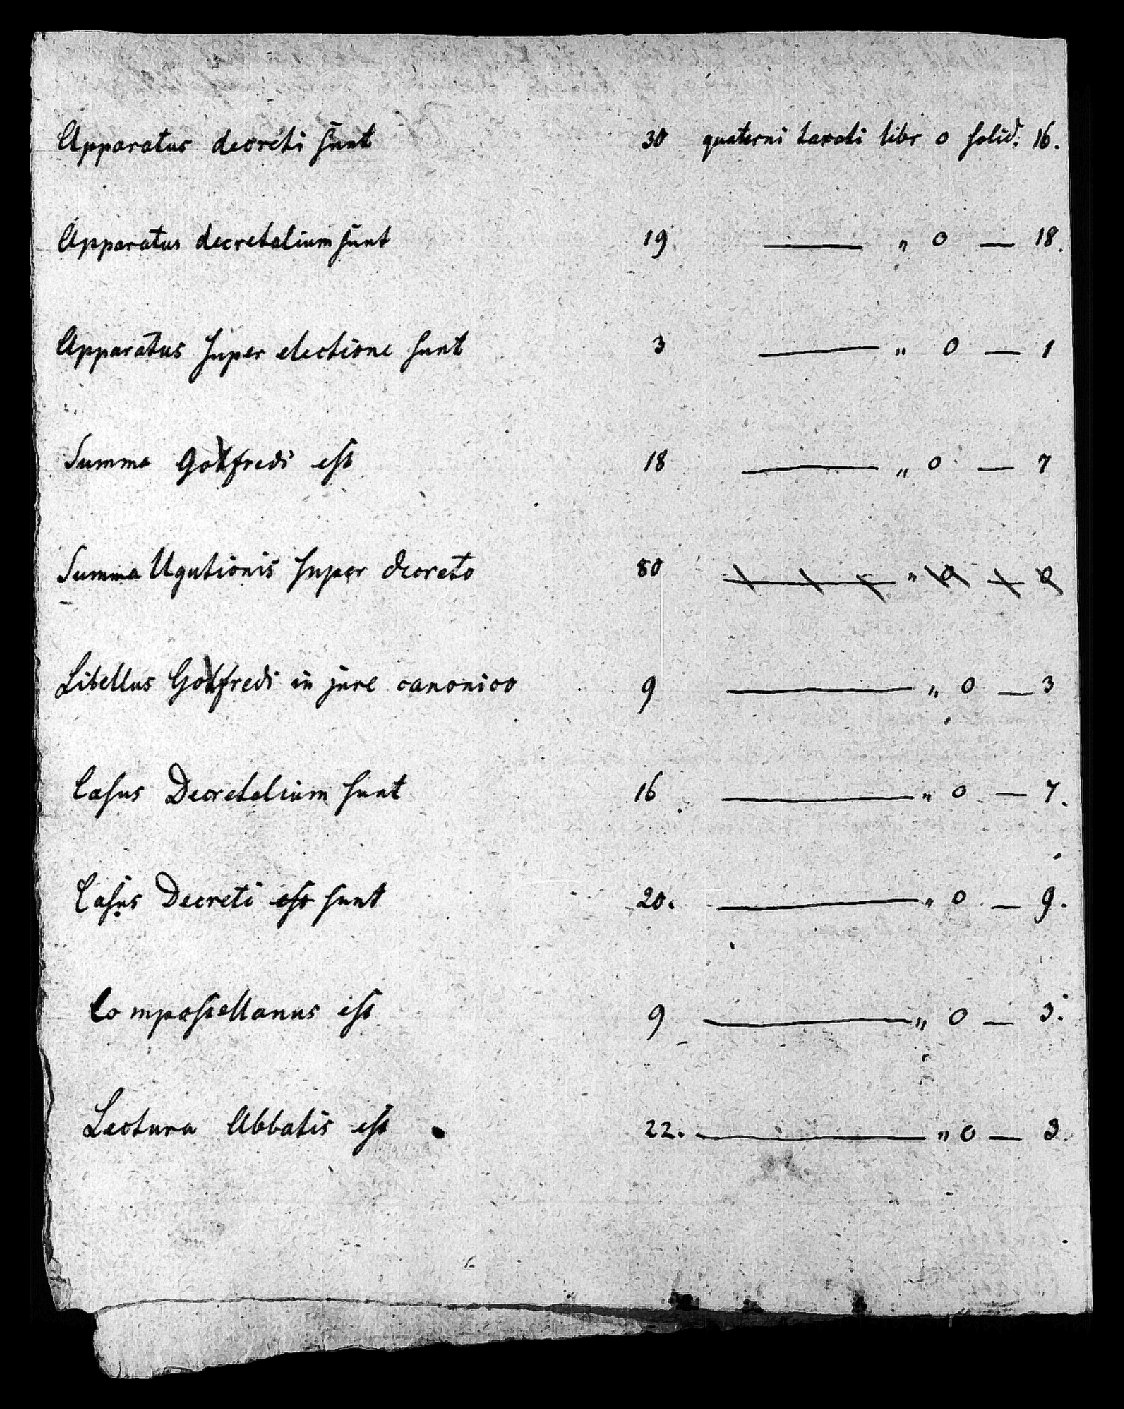 Apparatus decreti sunt 30 quaterni taxati libr 0 solid. 16.
Apparatus decretalium sunt 19 — „ 0 — 18.
Apparatus super electione sunt 3 — „ 0 — 1
Summa Gotfredi est 18 — „ 0 — 7
Summa Ugutionis super decreto 80 — „ 0 — 0
Libellus Gotfredi in jure canonico 9 — „ 0 — 3
Casus Decretalium sunt 16 — „ 0 — 7.
Casus Decreti est sunt 20. — „ 0 — 9.
Compostellanus est 9 — „ 0 — 3.
Lectura Abbatis est 22. — „ 0 — 3.